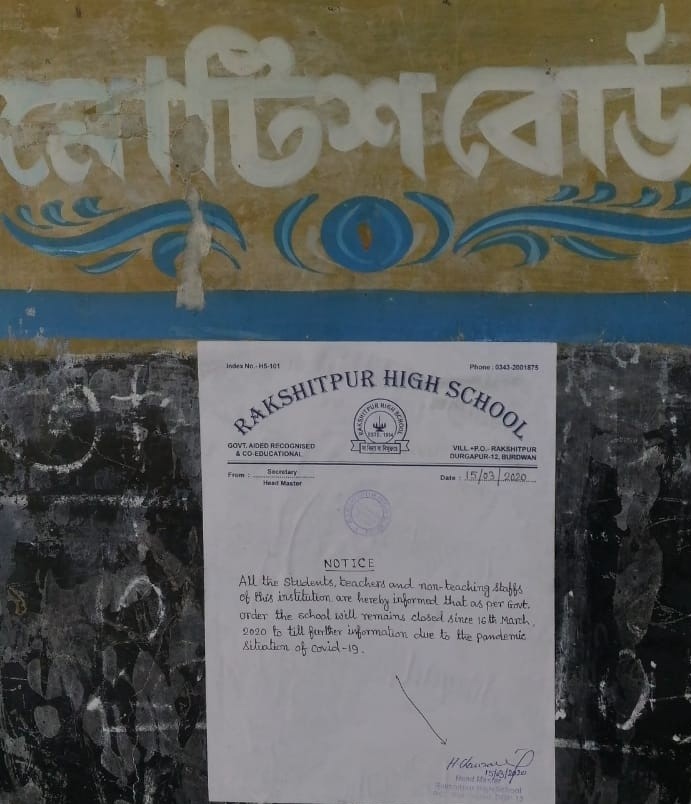 নোটিশ বোর্ড
Index No.- HS-101
Phone : 0343-2001875
RAKSHITPUR HIGH SCHOOL
RAKSHITPUR HIGH SCHOOL
ESTD. 1954
GOVT. AIDED RECOGNISED
& CO-EDUCATIONAL
VILL.+P.O.- RAKSHITPUR
DURGAPUR-12, BURDWAN
From : Secretary
Head Master
Date : 15/03/2020
NOTICE
All the students, teachers and non-teaching staffs
of this institution are hereby informed that as per Govt.
order the school will remains closed since 16th March,
2020 to till further information due to the pandemic
sitiation of covid-19.
15/03/2020
Head Master
Rakshitpur High School